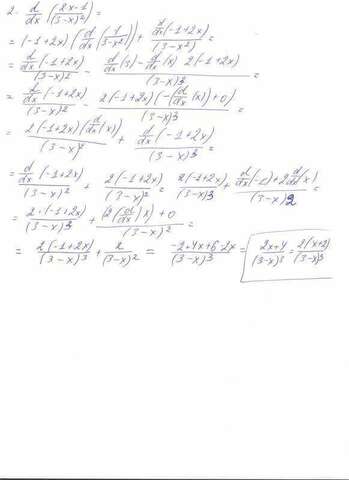 2. d/dx ((2x-1)/(3-x)²) =
= (-1+2x) (d/dx (1/(3-x²))) + (d/dx (-1+2x))/(3-x²) =
= (d/dx (-1+2x))/(3-x)² - (d/dx (3) - d/dx (x) 2(-1+2x))/(3-x)3 =
= (d/dx (-1+2x))/(3-x)² - (2(-1+2x)(-(d/dx (x))+0))/(3-x)3 =
= (2(-1+2x)(d/dx (x)))/(3-x)² + (d/dx (-1+2x))/(3-x)3 =
= (d/dx (-1+2x))/(3-x)² + (2(-1+2x))/(3-x)² = (2(-1+2x))/(3-x)3 + (d/dx (-1)+2 d/dx (x))/(3-x)2 =
= (2·(-1+2x))/(3-x)3 + (2(d/dx)x)+0)/(3-x)² =
= (2(-1+2x))/(3-x)³ + 2/(3-x)² = (-2+4x+6-2x)/(3-x)³ = (2x+4)/(3-x)³ = (2(x+2))/(3-x)³